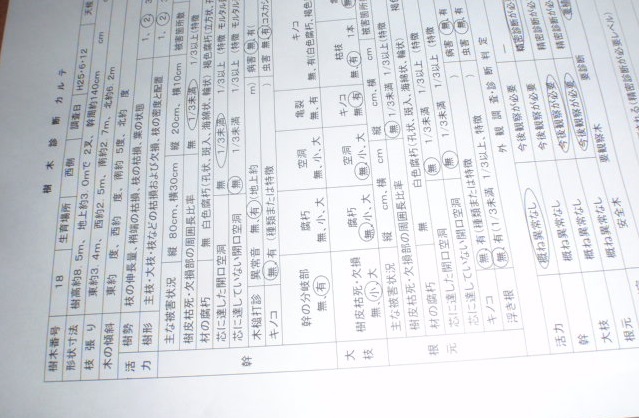 樹木診断カルテ
樹木番号 18 生育場所 西側 調査日 H25・6・12 天候
形状寸法 樹高約8.5m、地上約3.0mで2叉、幹周約140cm
枝張り 東約3.4m、西約2.5m、南約2.7m、北約6.2m
木の傾斜 東約 度、西約 度、南約5度、北約 度
活力 樹勢 枝の伸長量、梢端の枯損、枝の枯損、葉の状態 1、2、3
樹形 主枝・大枝・枝などの枯損および欠損、枝の密度と配置 1、2、3
幹 主な被害状況 縦80cm、横30cm 縦20cm、横10cm 被害箇所数
樹皮枯死・欠損部の周囲長比率 無 1/3未満 1/3以上(特徴
材の腐朽 無 白色腐朽(孔状、斑入、海綿状、輪状) 褐色腐朽(立方状、
芯に達した開口空洞 無 1/3未満 1/3以上(特徴 モルタル
芯に達していない開口空洞 無 1/3未満 1/3以上(特徴 モルタル
木槌打診 異常音 無、有(地上約 m) 病害 無、有(
キノコ 無、有(種類または特徴 ) 虫害 無、有(コスカシ
幹の分岐部 腐朽 空洞 亀裂 キノコ
無、有 無、小、大 無、小、大 無、有 無、有(白色腐朽、褐色
大枝 樹皮枯死・欠損 腐朽 空洞 キノコ 枯枝
無、小、大 無、小、大 無、小、大 無、有 無、有 1本
根元 主な被害状況 縦 cm、横 cm 縦 cm、横 cm 被害箇所
樹皮枯死・欠損部の周囲長比率 無 1/3未満 1/3以上(特徴
材の腐朽 無 白色腐朽(孔状、斑入、海綿状、輪状) 褐色
芯に達した開口空洞 無 1/3未満 1/3以上(特徴
芯に達していない開口空洞 無 1/3未満 1/3以上(特徴
キノコ 無、有(種類または特徴 ) 病害 無、有
浮き根 無 有(1/3未満 1/3以上、特徴 ) 虫害 無、有
外観調査・診断判定
活力 概ね異常なし 今後観察が必要 精密診断が必要
幹 概ね異常なし 今後観察が必要 精密診断が必要
大枝 概ね異常なし 今後観察が必要 精密診断が必要
根元 概ね異常なし 今後観察が必要 精密診断が必要
安全木 要観察木 要診断